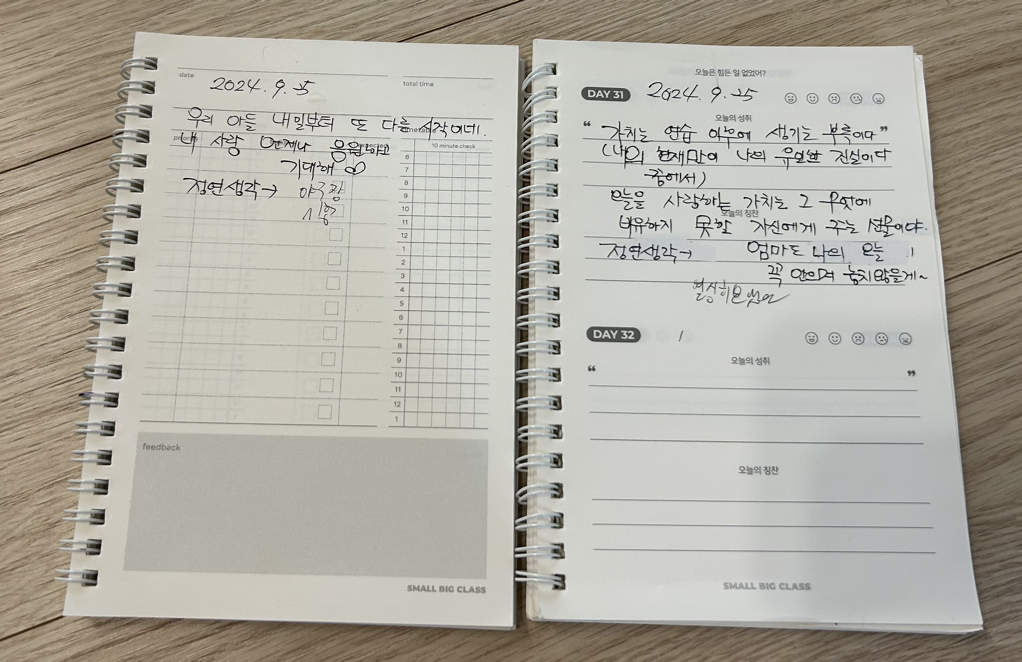 date
total time
2024. 9. 25
우리 아들 내일부터 또 다른 시작이네.
내 사랑 언제나 응원하고
10 minute check
기대해
정연생각→
6
7
8
9
10
11
12
1
2
3
4
5
6
7
8
9
10
11
12
1
feedback
SMALL BIG CLASS
오늘은 힘든 일 없었어?
DAY 31
2024. 9. 25
오늘의 성취
“ 가치는 연습 이후에 생기는 부록이다 ”
(나의 현재만이 나의 유일한 진실이다
중에서)
오늘을 사랑하는 가치는 그 무엇에
오늘의 칭찬
비유하지 못할 자신에게 주는 선물이다.
정연생각→ 엄마도 나의 오늘
꼭 안으며 놓치않을게~
DAY 32
/
오늘의 성취
“ ”
오늘의 칭찬
SMALL BIG CLASS